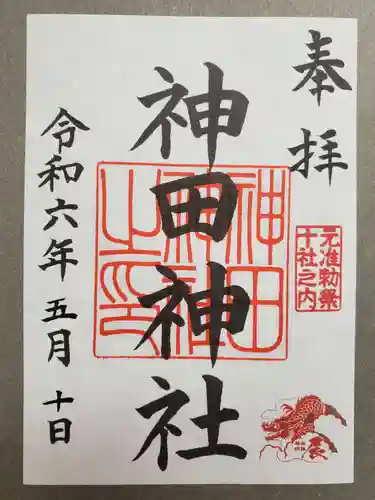 奉拝
元准勅祭
十社之内
辰
神田神社
神田神社之印
令和六年五月十日